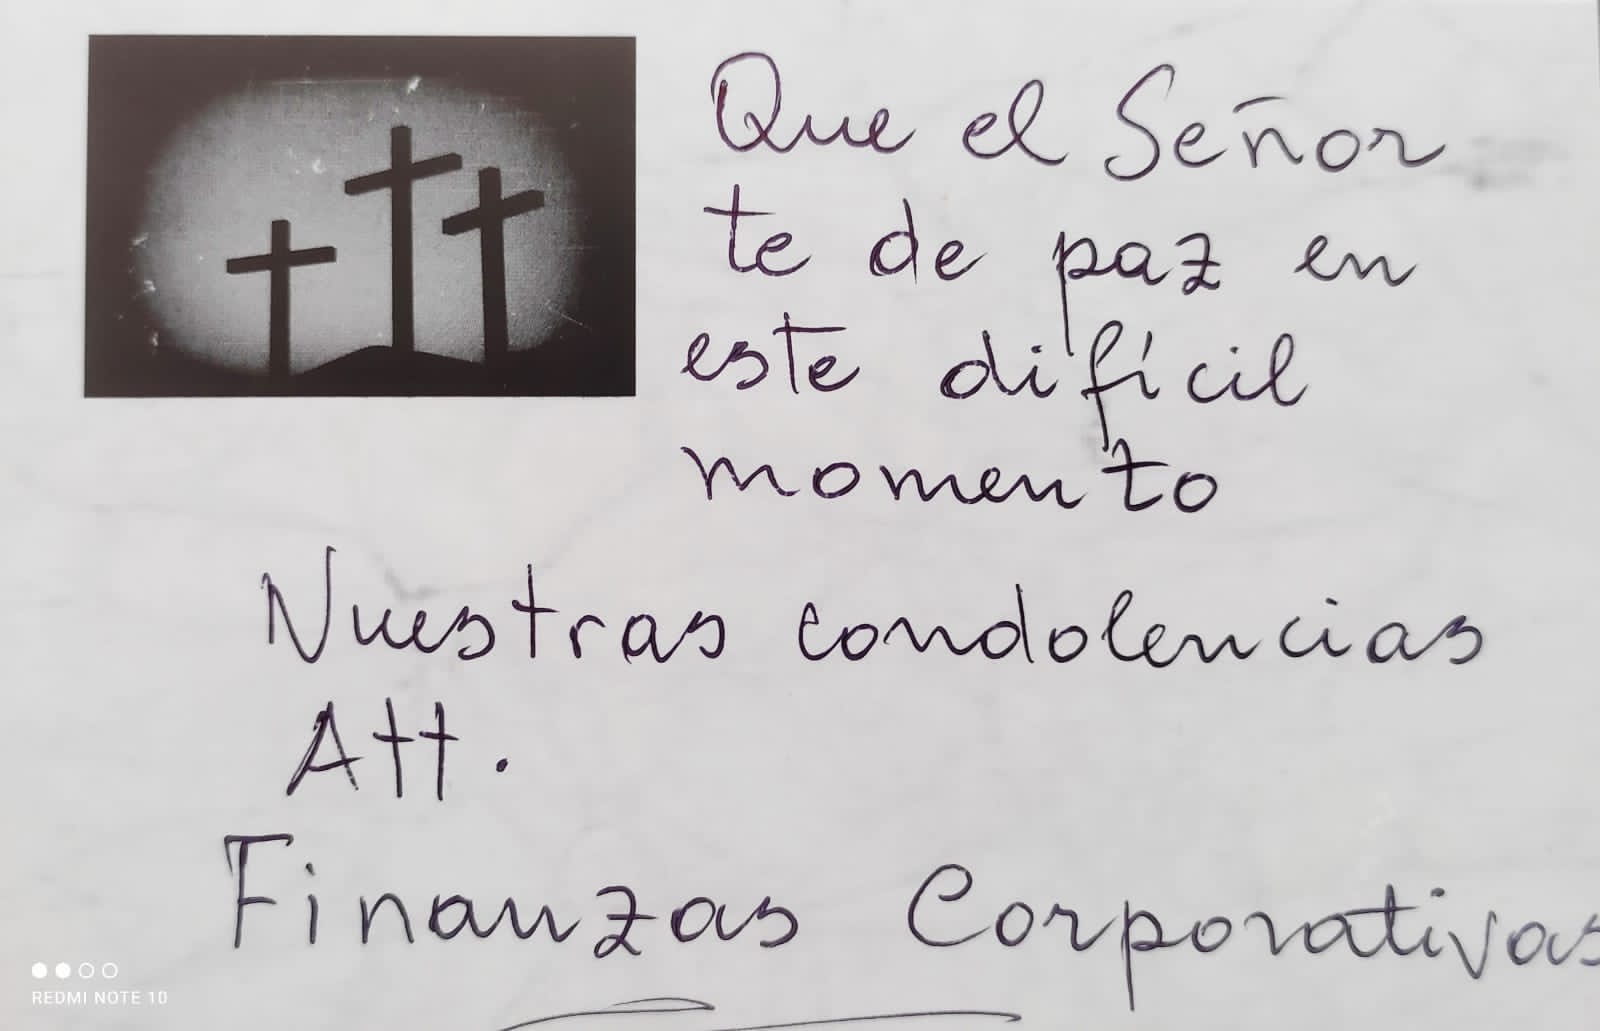 Que el Señor
te de paz en
este difícil
momento
Nuestras condolencias
Att.
Finanzas Corporativas
REDMI NOTE 10